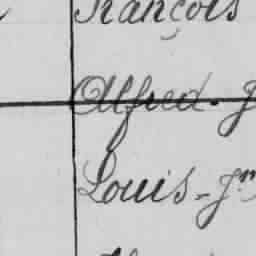 François
Alfred-J
Louis-Jm